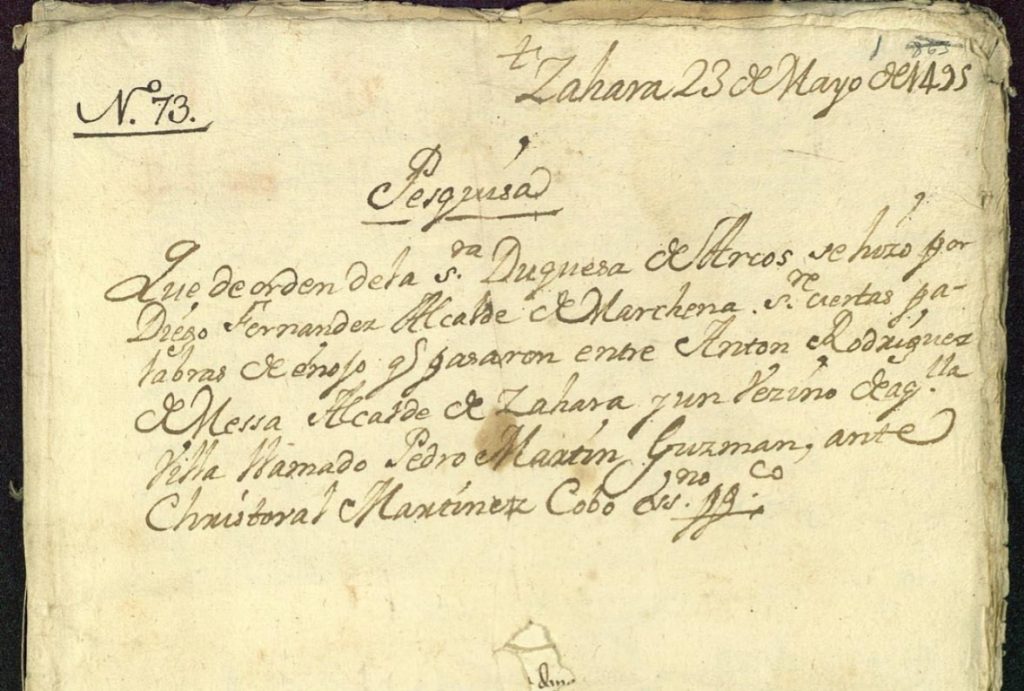 1 865
Zahara 23 de Mayo de 1495
N.º 73.
Pesquisa
Que de orden de la S.ra Duquesa de Arcos se hizo por
Diego Fernandez Alcalde de Marchena. S.re ciertas pa-
labras de enojo q̃ pasaron entre Anton Rodriguez
de Messa Alcalde de Zahara y un Vezino de aq.lla
Villa llamado Pedro Martin Guzman, ante
Christoval Martinez Cobo Ess.no pp.co